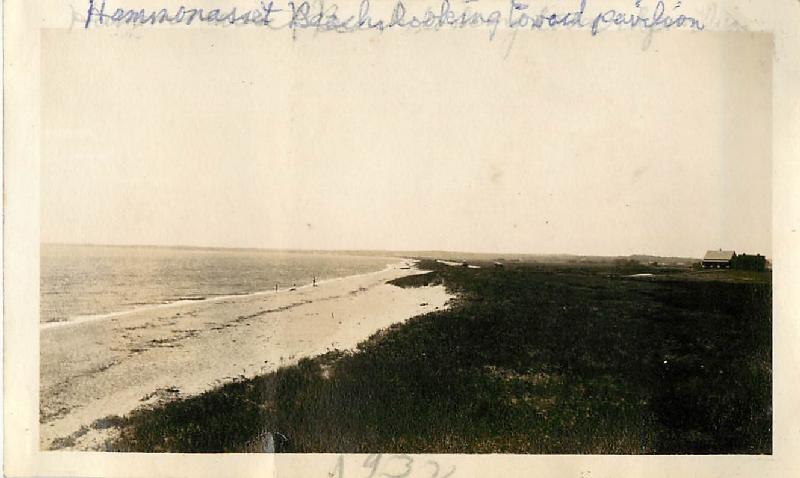 Hammonasset Beach looking toward pavilion
1932